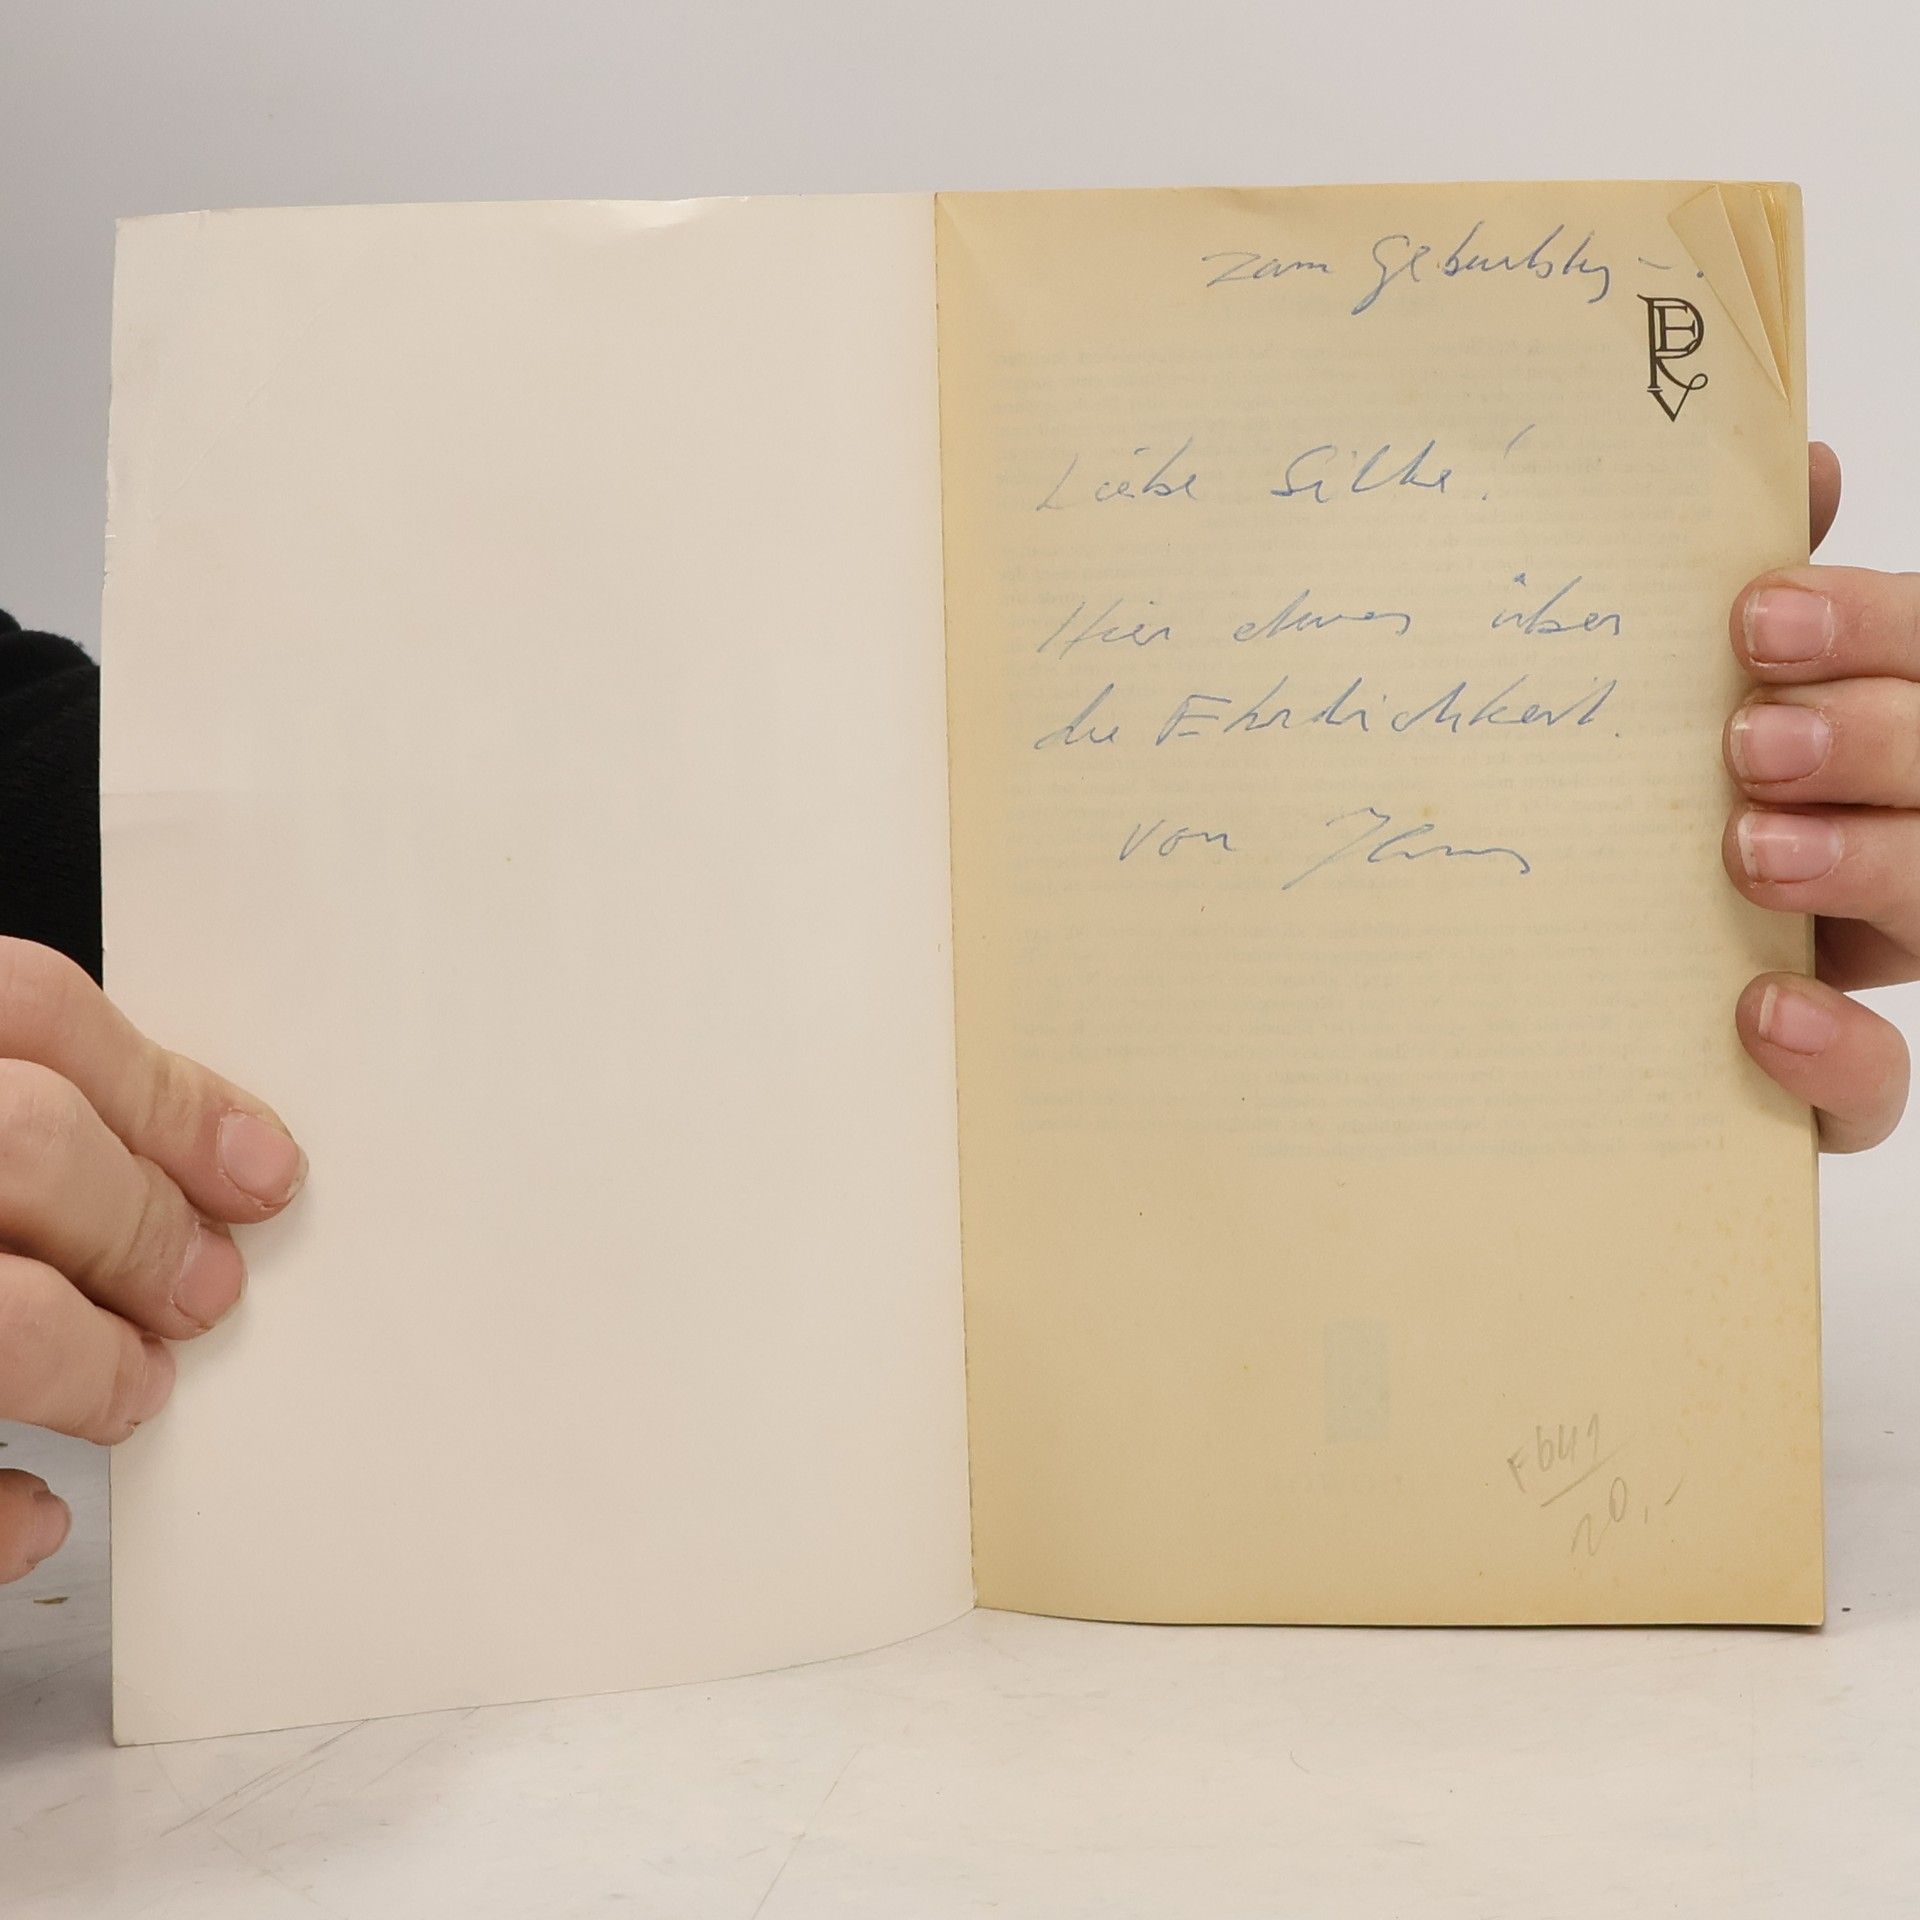 zum Geburtstag - .
Liebe Silke!
Hier etwas über
die Ehrlichkeit.
von
20,-